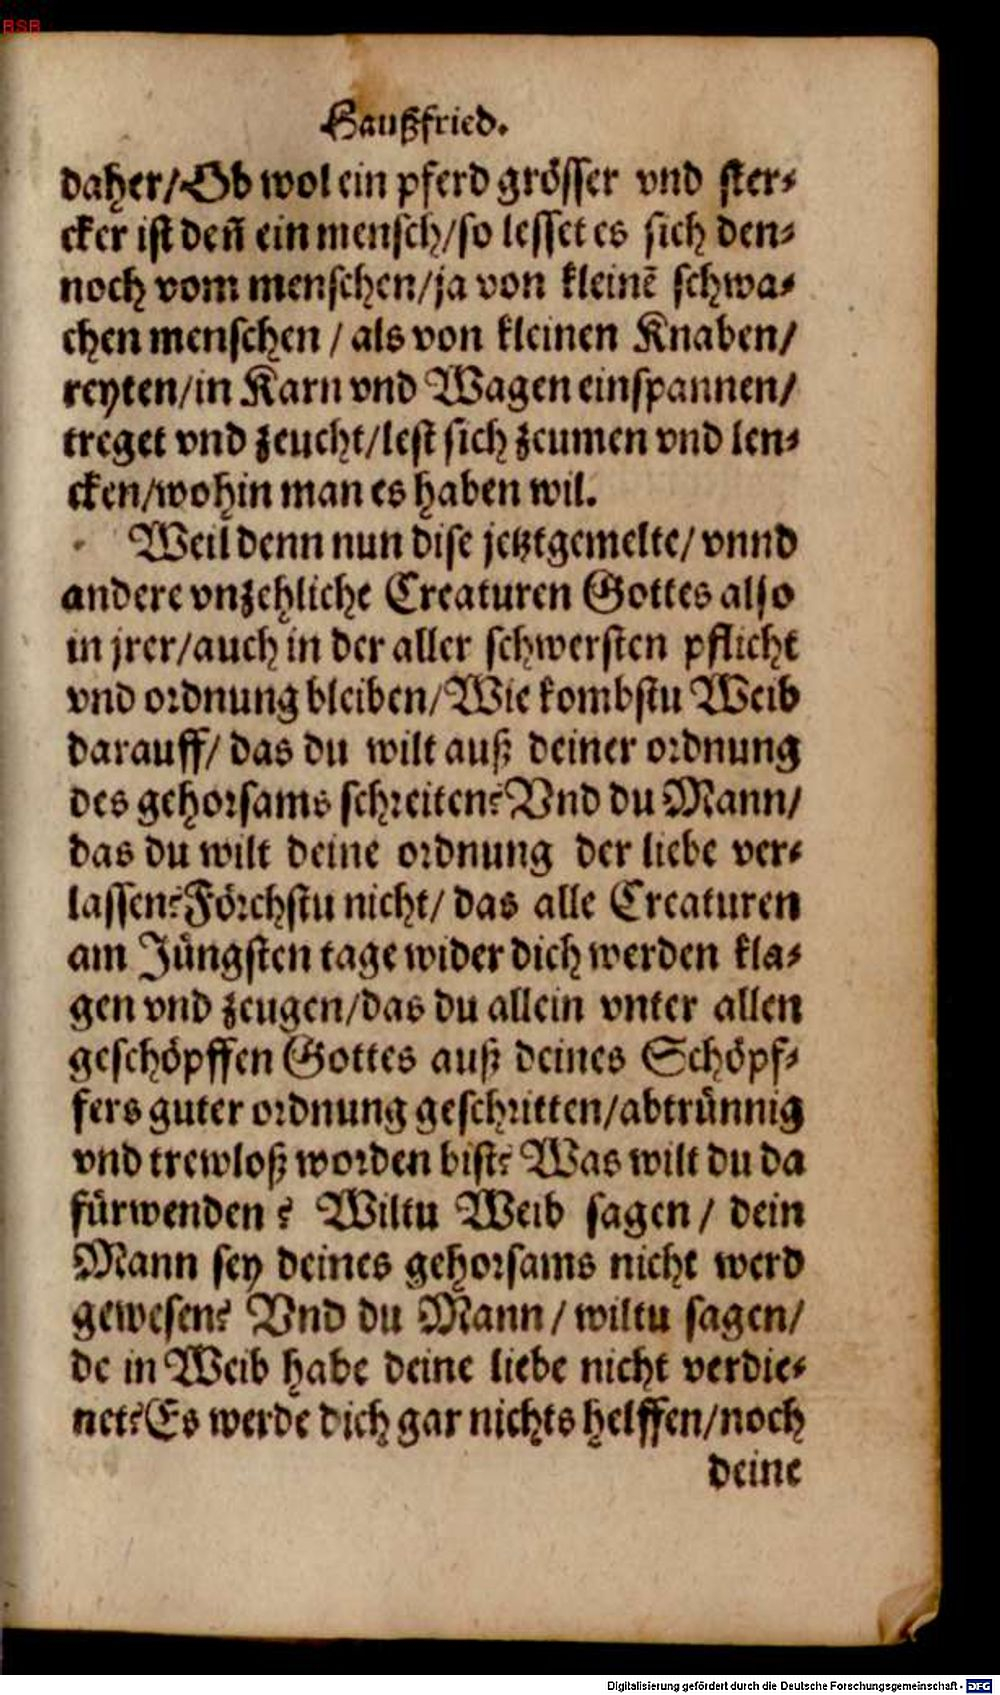 BSB
Haußfried.
daher/Ob wol ein pferd grösser vnd ster-
cker ist deñ ein mensch/so lesset es sich den-
noch vom menschen/ja von kleinē schwa-
chen menschen / als von kleinen Knaben/
reyten/in Karn vnd Wagen einspannen/
treget vnd zeucht/lest sich zeumen vnd len-
cken/wohin man es haben wil.
Weil denn nun dise jetztgemelte/ vnnd
andere vnzehliche Creaturen Gottes also
in jrer/auch in der aller schwersten pflicht
vnd ordnung bleiben/Wie kombstu Weib
darauff/ das du wilt auß deiner ordnung
des gehorsams schreiten? Vnd du Mann/
das du wilt deine ordnung der liebe ver-
lassen? Förchstu nicht/ das alle Creaturen
am Jüngsten tage wider dich werden kla-
gen vnd zeugen/das du allein vnter allen
geschöpffen Gottes auß deines Schöpf-
fers guter ordnung geschritten/abtrünnig
vnd trewloß worden bist? Was wilt du da
fürwenden ? Wiltu Weib sagen / dein
Mann sey deines gehorsams nicht werd
gewesen? Vnd du Mann / wiltu sagen/
de in Weib habe deine liebe nicht verdie-
net? Es werde dich gar nichts helffen/noch
deine
Digitalisierung gefördert durch die Deutsche Forschungsgemeinschaft - DFG